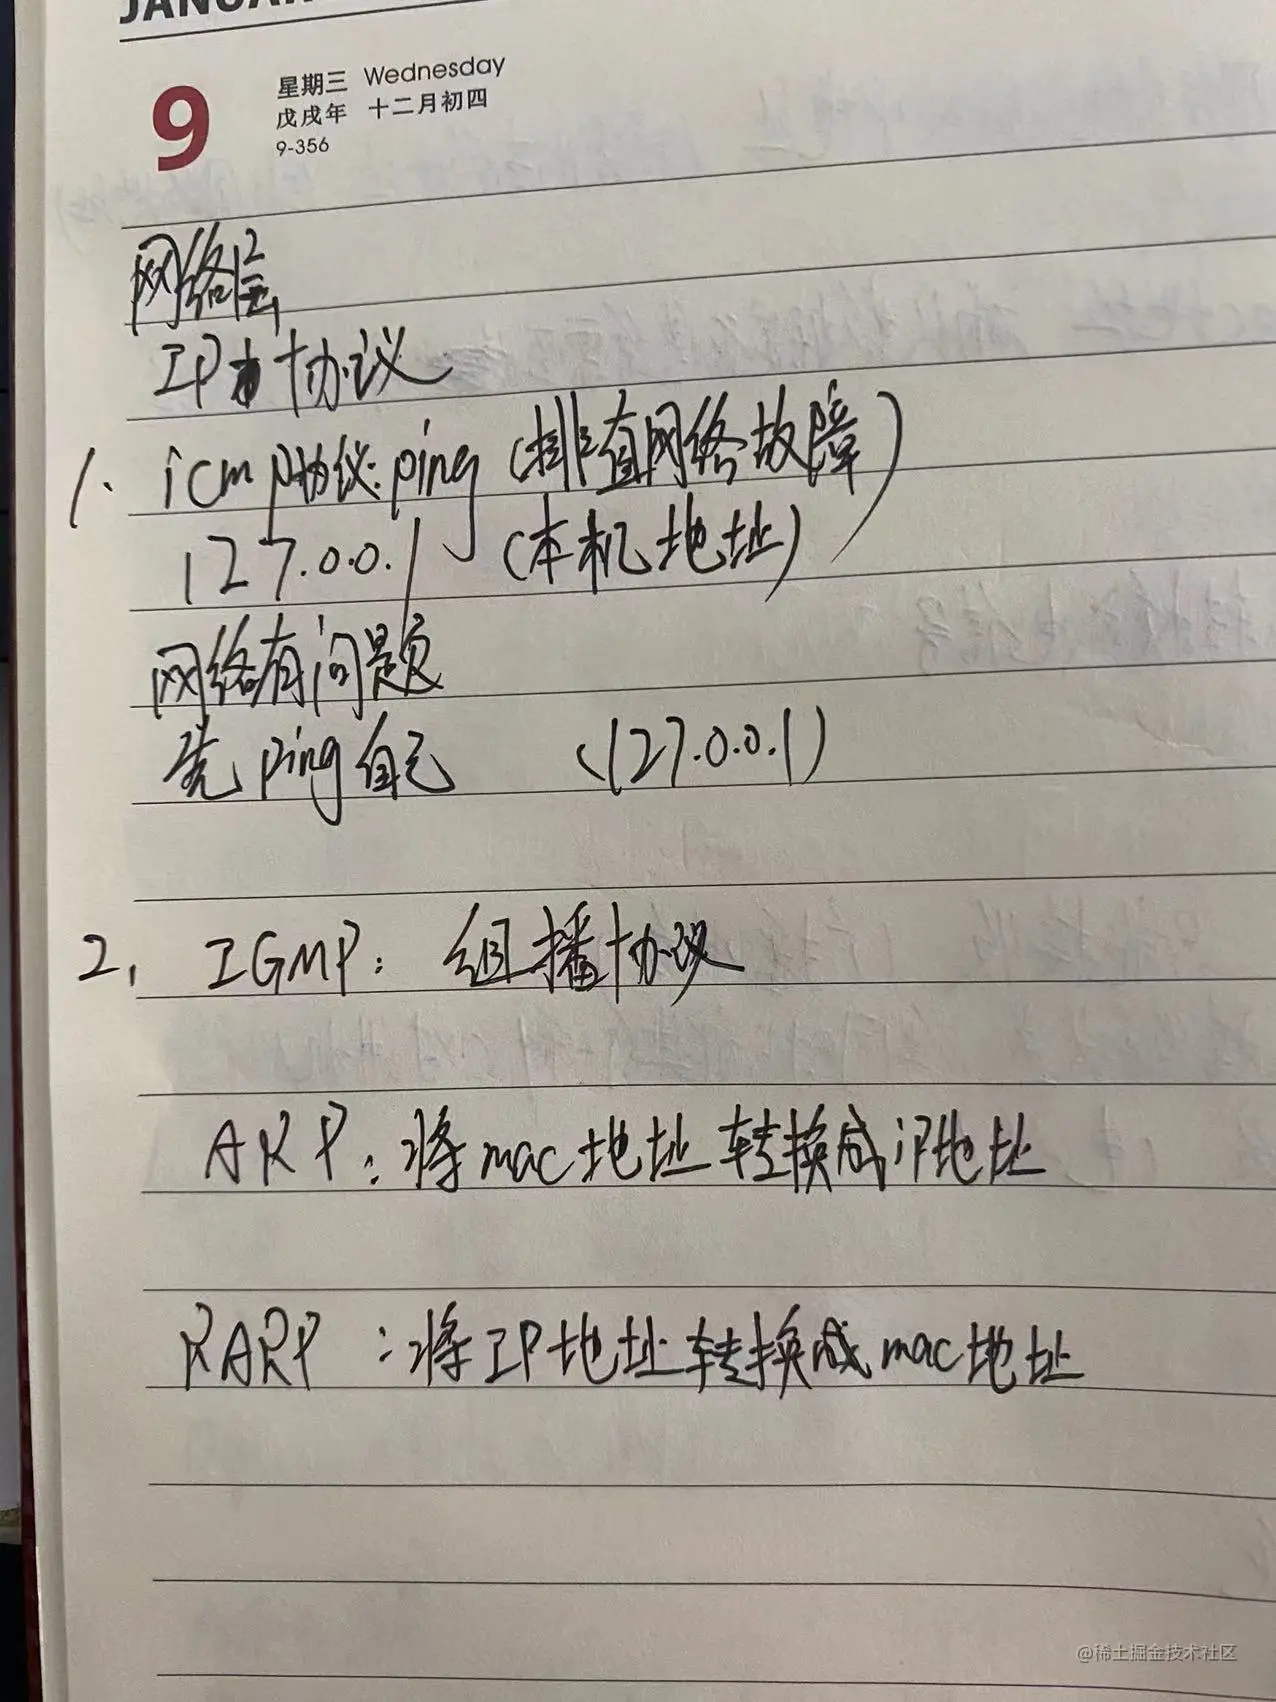 JANUAR
9
星期三 Wednesday
戊戌年 十二月初四
9-356
网络层
IP协议
1. icmp协议:ping (排值网络故障)
127.0.0.1 (本机地址)
网络有问题
先ping自己 (127.0.0.1)
2. IGMP: 组播协议
ARP:将mac地址转换成iP地址
RARP:将IP地址转换成mac地址
@稀土掘金技术社区